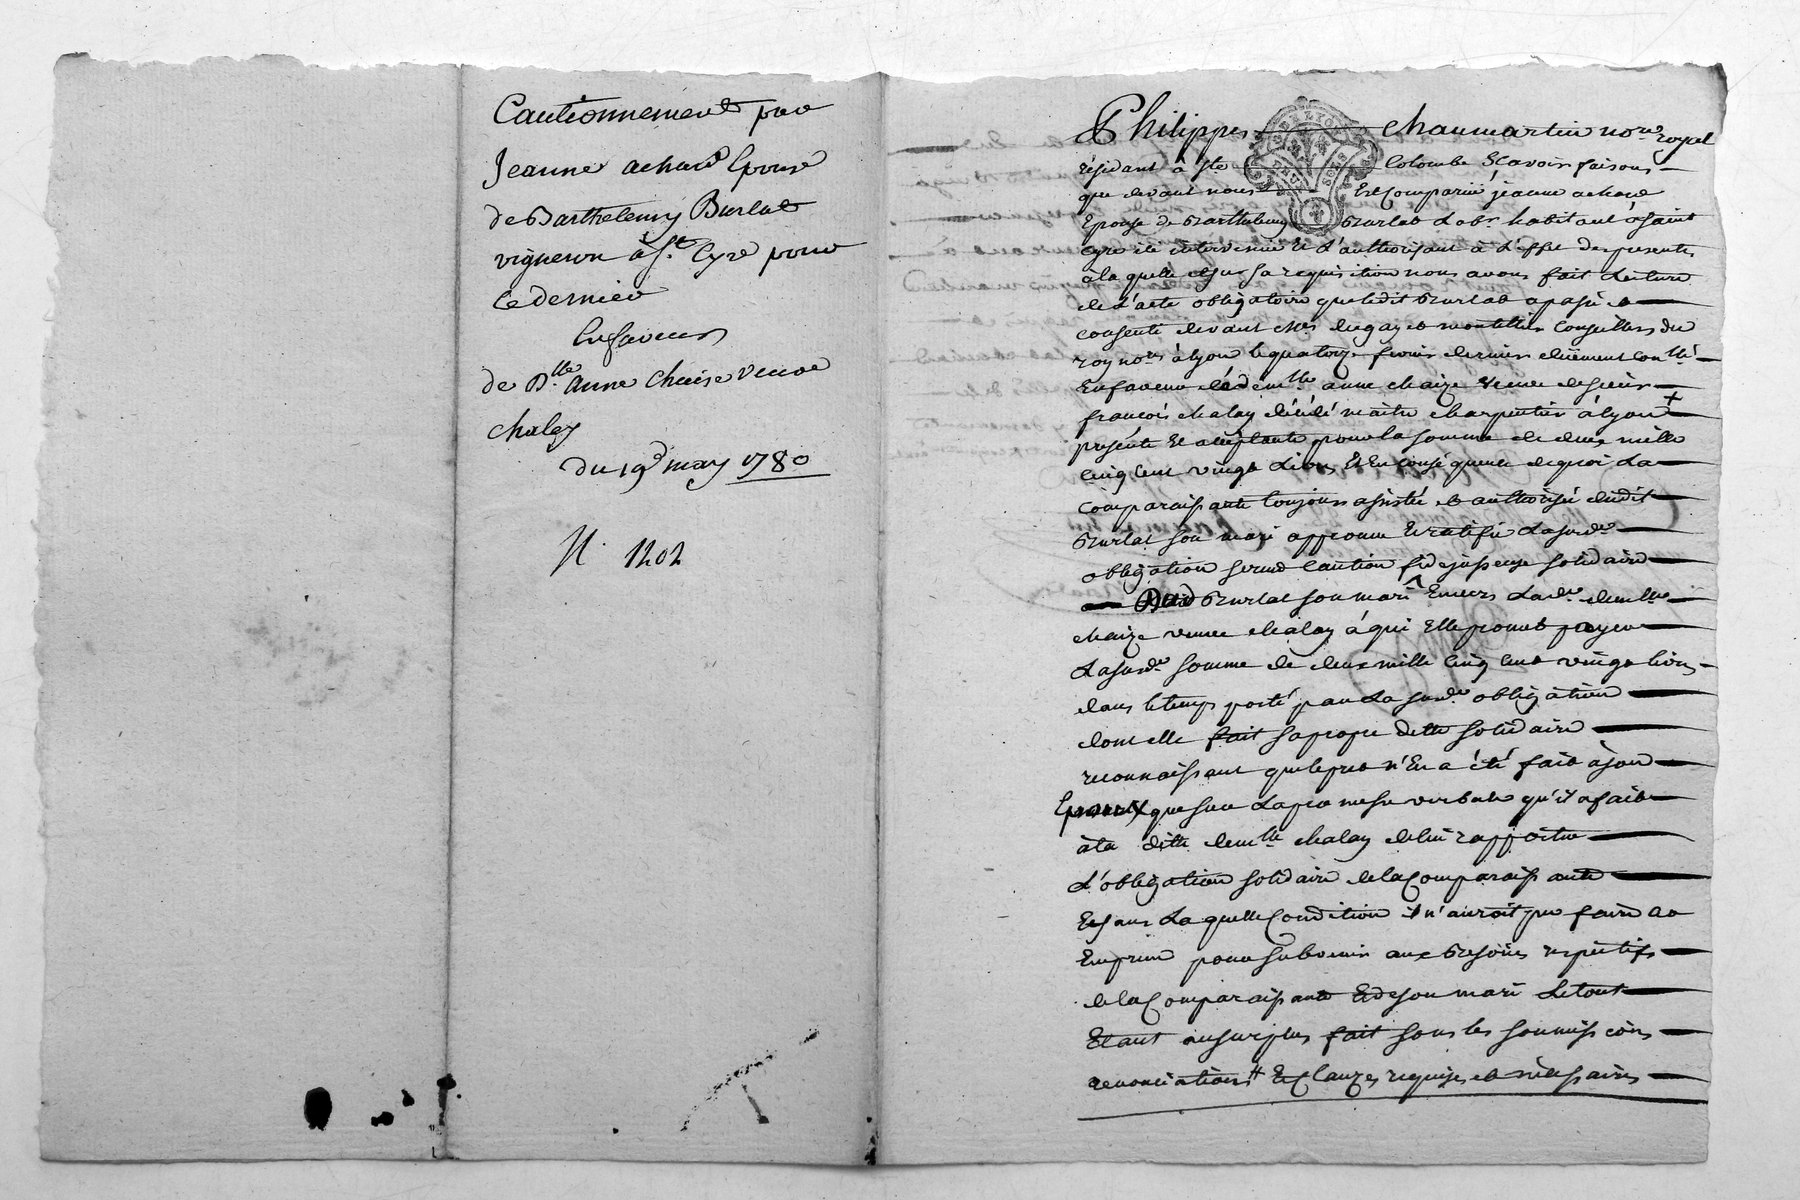 Cautionnement par
Jeanne achard Epouse
de Barthelemy Burlat
vigneron à St. Cyre pour
ce dernier
En faveur
de Dlle. anne Chaise veuve
Chalay
du 19 may 1780
N. 1202
Philippes Chaumartin nore royal
résidant à Ste Colombe Scavoir faisons
que devant nous Est Comparüe jeanne achard
Epouse de Barthelemy Burlat Labr. habitant à saint
cyre ici intervenu Et L'authorisant à L'effet des presentes
à la quelle Et sur sa requisition nous avons fait Lecture
de L'acte obligatoire que ledit Burlat a passé et
consenti devant Mes. degay et montellier Conseillers du
roy nores à Lyon le quatorze fevrier dernier düement conllé.
En faveur de demlle anne chaize veuve de sieur
françois chalay décédé maitre charpentier à lyon +
presente Et aceptante pour la somme de deux mille
cinq cent vingt Livres Et En conséquence de quoi La
comparaissante toujours assistée et authorisée dudit
Burlat son mari approuve Et ratifie La susde
obligation se rend Caution fidejusseuse solidaire
dud Burlat son mari Envers Lade demlle
chaize veuve chalay à qui Elle promet payer
La susde. somme de deux mille cinq cent vingt livres
dans le temps porté par La susde. obligation
dont elle fait sa propre dette solidaire
reconnaissant que le pret n'En a été fait à son
Epoux que sur La promesse verbale qu'il a faite
à la ditte demlle chalay de lui rapporter
L'obligation solidaire de la Comparaissante
Et sans La quelle Condition il n'auroit pu faire cet
Emprunt pour subvenir aux Besoins respectifs
de la Comparaissante Et de son mari Le tout
Etant au surplus fait sous les soumissions
renonciations # Et Clauzes requises et nécessaires